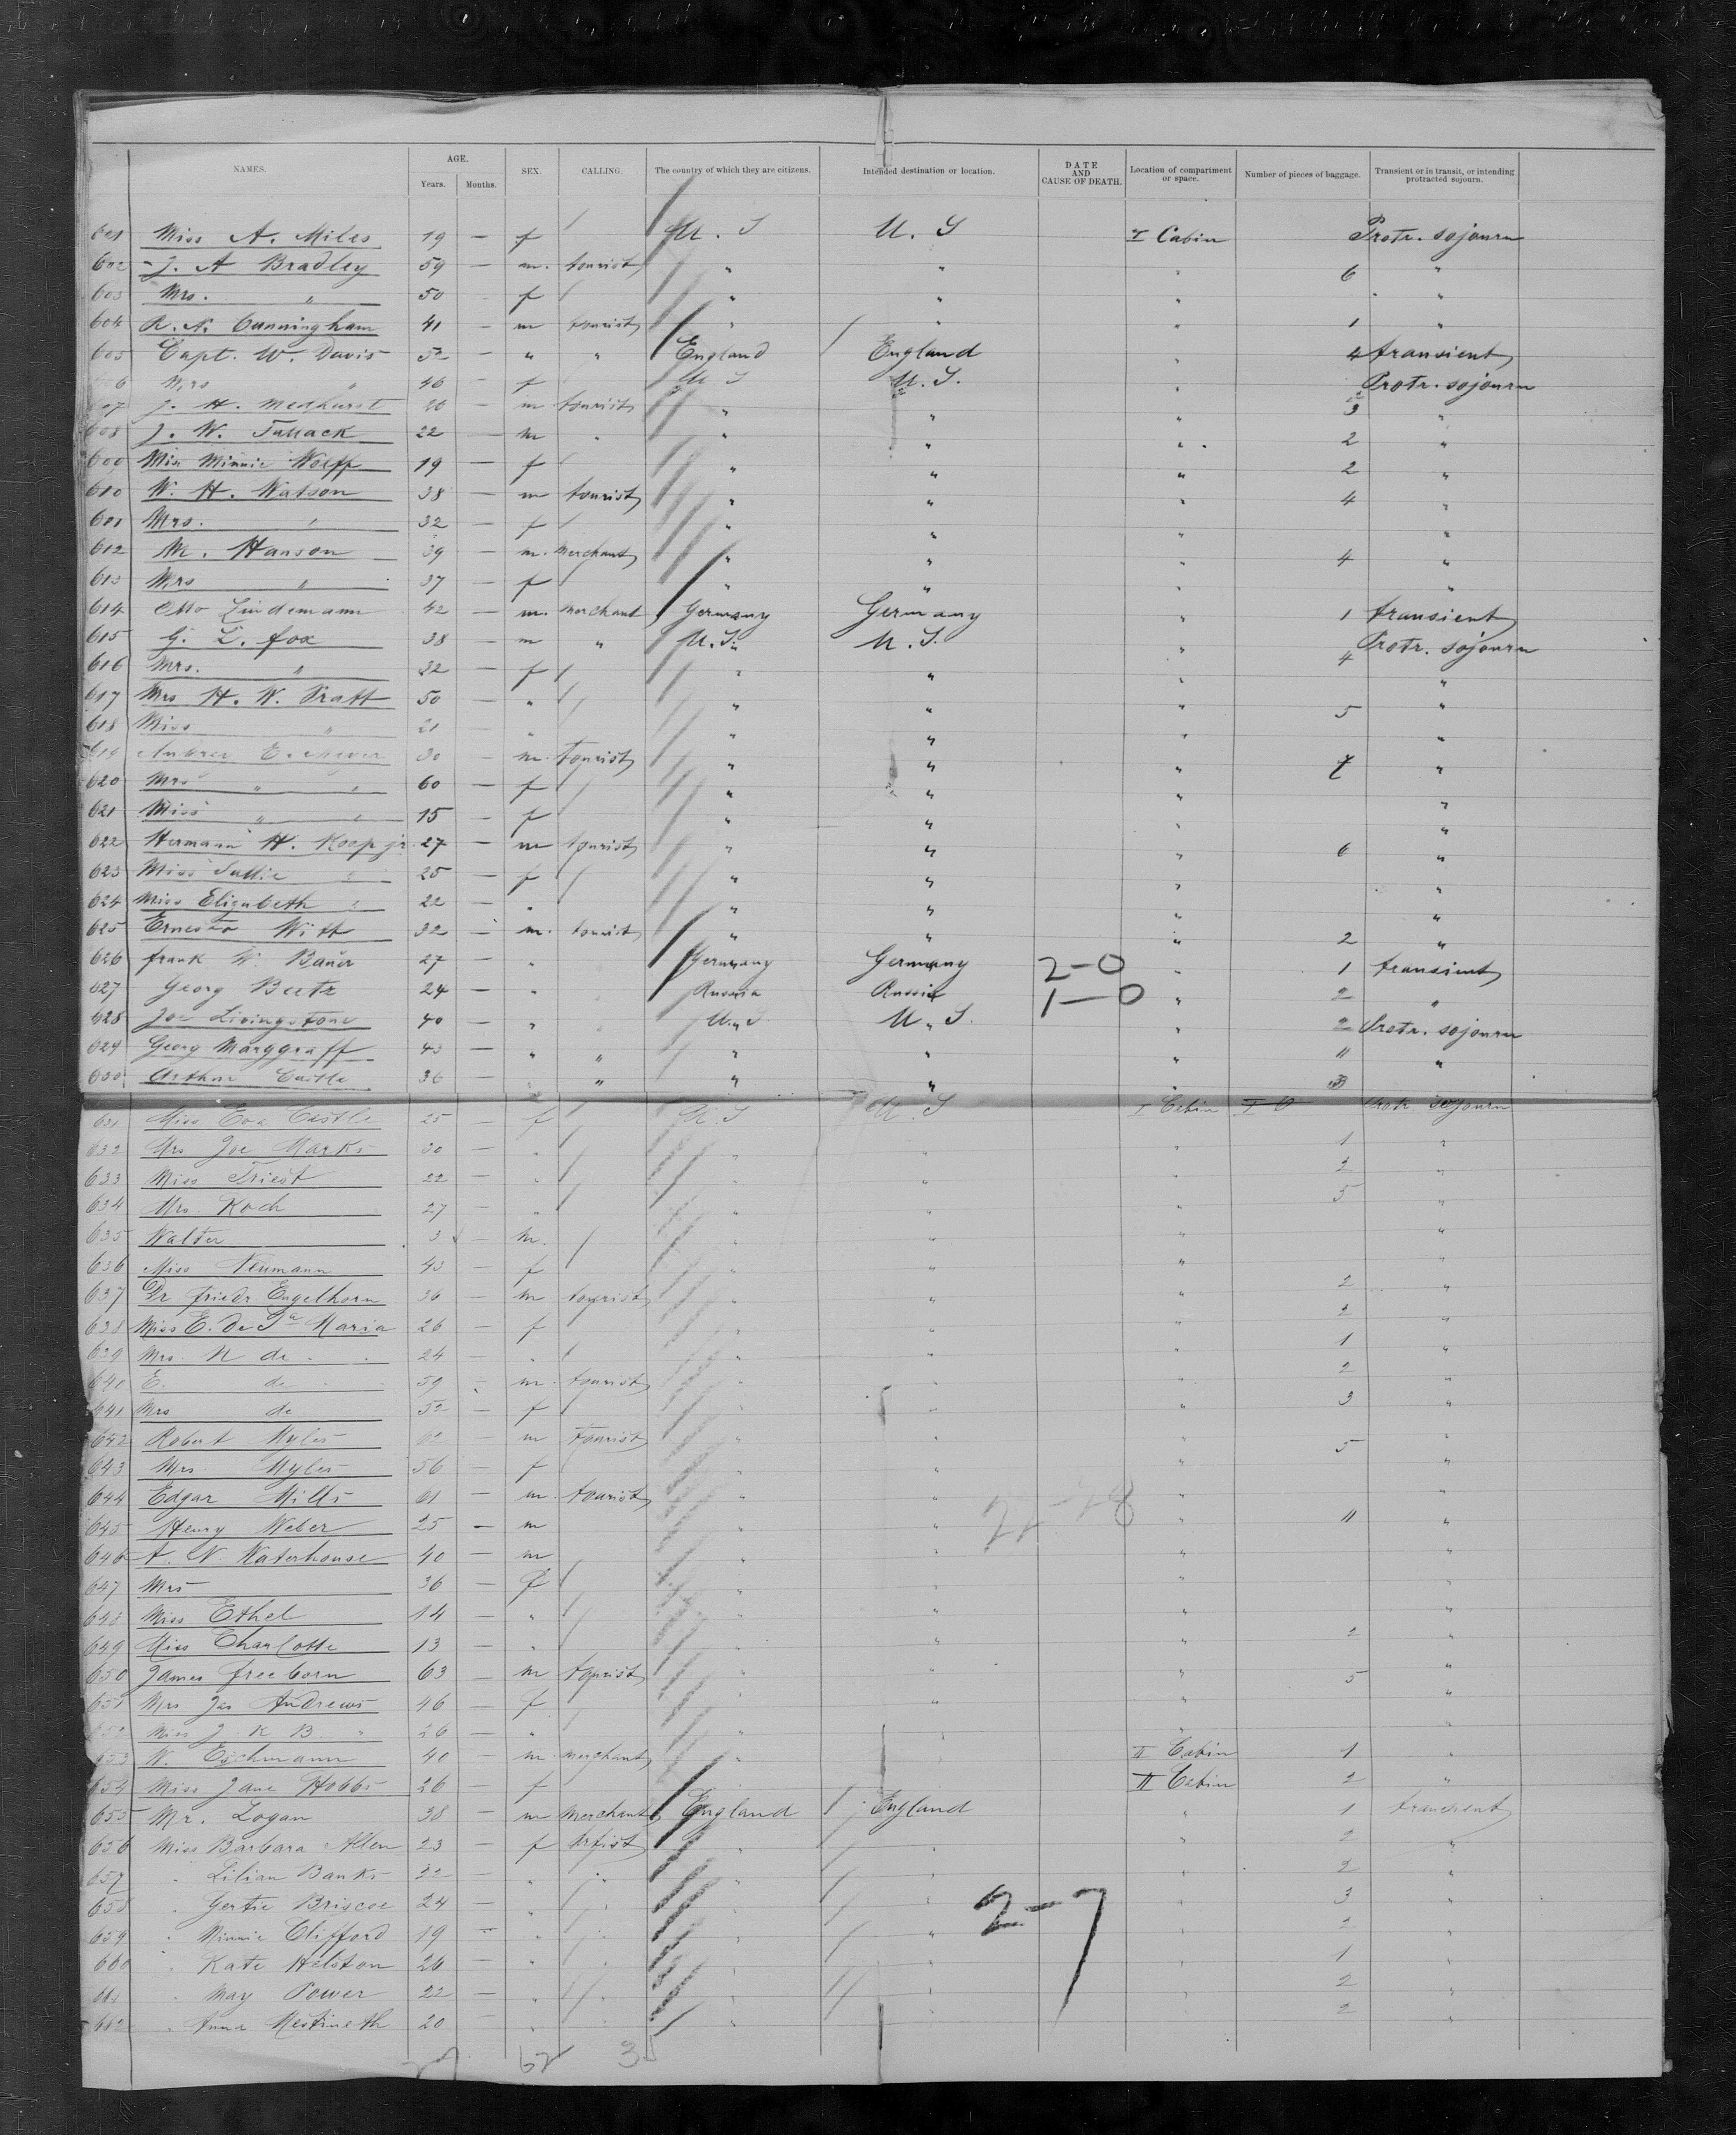 NAMES. AGE. Years. Months. SEX. CALLING. The country of which they are citizens. Intended destination or location. DATE AND CAUSE OF DEATH. Location of compartment or space. Number of pieces of baggage. Transient or in transit, or intending protracted sojourn.
601 Miss A. Miles 19 — f / U. S U. S I Cabin Protr. sojourn
602 J. A Bradley 59 — m. tourist " " " 6 "
603 Mrs. " 50 — f / " " " "
604 R. N. Cunningham 41 — m tourist " " " 1 "
605 Capt. W. Davis 52 — " " England England " 4 transient
606 Mrs " 46 — f U. S U. S. " Protr. sojourn
607 J. H. Medhurst 20 — m tourist " " " 3 "
608 J. W. Tallack 22 — m " " " " 2 "
609 Miss Minnie Wolff 19 — f / " " " 2 "
610 W. H. Watson 38 — m tourist " " " 4 "
601 Mrs. " 32 — f / " " " "
612 M. Hanson 39 — m. merchant " " " 4 "
613 Mrs " 37 — f / " " " "
614 Otto Lindemann 42 — m. merchant Germany Germany " 1 transient
615 G. L. Fox 38 — m " U. S. U. S. " Protr. sojourn
616 Mrs. " 32 — f / " " " 4 "
617 Mrs H. W. Pratt 50 — " / " " " 5 "
618 Miss " 21 — " / " " " "
619 30 — m. tourist " " " 7 "
620 Mrs " " 60 — f / " " " "
621 Miss " " 15 — f / " " " "
622 Hermann H. Koop jr. 27 — m tourist " " " 6 "
623 Miss Sallie " 25 — f / " " " "
624 Miss Elizabeth " 22 — " " " " "
625 Ernesto Witt 32 — m. tourist " " " 2 "
626 Frank W. Bauer 27 — " Germany Germany 2-0 " 1 transient
627 Georg Beetz 24 — " Russia Russia 1-0 " 2 "
628 Joe Livingstone 40 — " " U. S. U. S. " 2 Protr. sojourn
629 Georg Marggraff 43 — " " " " " 11 "
630 Arthur Castle 36 — " " " " " 3 "
631 Miss Eva Castle 25 — f / U. S U. S I Cabin Protr. sojourn
632 Mrs Joe Marks 30 — " / " " " 1 "
633 Miss Triest 22 — " / " " " 2 "
634 Mrs. Koch 27 — " / " " " 5 "
635 Walter 3 — m. / " " " "
636 Miss Neumann 43 — f / " " " "
637 Dr Friedr. Engelhorn 36 — m tourist " " " 2 "
638 Miss E. de Sa Maria 26 — f / " " " 2 "
639 Mrs. N de " " 24 — " / " " " 1 "
640 E. de " 59 — m. tourist " " " 2 "
641 Mrs de 52 — f / " " " 3 "
642 Robert Myles 62 — m Tourist " " " "
643 Mrs Myles 56 — f " " " 5 "
644 Edgar Mills 61 — m. tourist " " " "
645 Henry Weber 25 — m " " " 11 "
646 A. N. Waterhouse 40 — m " " " "
647 Mrs 36 — f / " " " "
648 Miss Ethel 14 — " / " " " "
649 Miss Charlotte 13 — " / " " " 2 "
650 James Freeborn 63 — m tourist " " " 5 "
651 Mrs Jas Andrews 46 — f / " " " "
652 Miss J K B. " 26 — " " " " "
653 W. Eschmann 40 — m. merchant " " II Cabin 1 "
654 Miss Jane Hobbs 26 — f II Cabin 2 "
655 Mr. Logan 38 — m merchant England England " 1 transient
656 Miss Barbara Allen 23 — f Artist " " " 2 "
657 " Lilian Banks 22 — " " " " " 2 "
658 " Gertie Briscoe 24 — " " " " 2-7 " 3 "
659 " Minnie Clifford 19 — " " " " " 2 "
660 " Kate Helston 26 — " " " " " 1 "
661 " May Power 22 — " " " " " 2 "
662 " Anna 20 — " " " " " 2 "
62 35